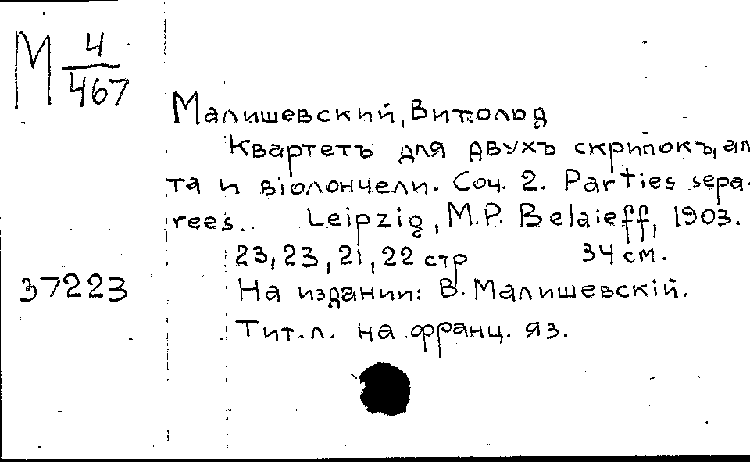 М 4/467
Малишевский, Витольд
Квартетъ для двухъ скрипокъ, аль
та и віолончели. Соч. 2. Parties sepa-
rees.. Leipzig, M.P. Belaieff, 1903.
23, 23, 21, 22 стр 34 см.
37223
На издании: В. Малишевскій.
Тит. л. на франц. яз.